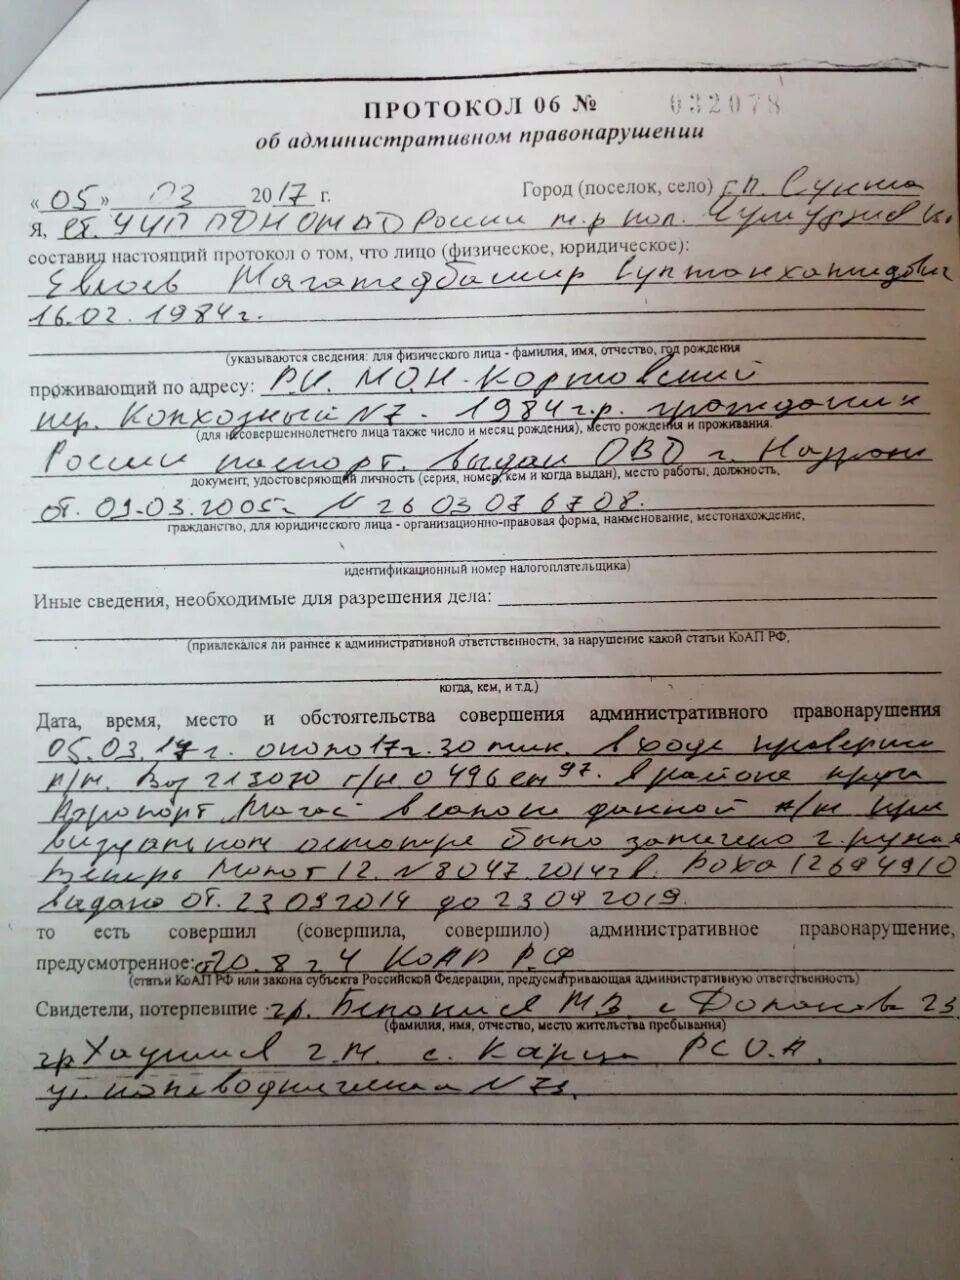 ПРОТОКОЛ 06 № 032078
об административном правонарушении
«05» 03 2017 г. Город (поселок, село) г.п. Сунжа
Я, ст. УУП России м-р пол.
составил настоящий протокол о том, что лицо (физическое, юридическое):
Евлоев Магамедбашир Султанхамидович
16.02.1984г.
(указываются сведения: для физического лица - фамилия, имя, отчество, год рождения
проживающий по адресу: Р.И. М.О.Н-Кортовский
пер. Колхозный №7. 1984г.р. гражданин
(для несовершеннолетнего лица также число и месяц рождения), место рождения и проживания.
России паспорт. выдан ОВД г. Назрань
документ, удостоверяющий личность (серия, номер, кем и когда выдан), место работы, должность,
от. 09.03.2005г N 26 03 076708.
гражданство, для юридического лица - организационно-правовая форма, наименование, местонахождение,
идентификационный номер налогоплательщика)
Иные сведения, необходимые для разрешения дела:
(привлекался ли раннее к административной ответственности, за нарушение какой статьи КоАП РФ,
когда, кем, и т.д.)
Дата, время, место и обстоятельства совершения административного правонарушения
05.03.17г. около 17г.30 мин. в ходе проверки
а/м. Ваз 213070 г/н 0496ен 97. в районе круга
Аэропорт Магас в салоне данной а/м при
визуальном осмотре было замечено
12. N8047.2014г в. РОХа 12694910
выдано от. 23 09 2014 до 23 09 2019.
то есть совершил (совершила, совершило) административное правонарушение,
предусмотренное: ст20.8 ч 4 КоАП РФ
(статьи КоАП РФ или закона субъекта Российской Федерации, предусматривающая административную ответственность)
Свидетели, потерпевшие гр. М.З. с 23
(фамилия, имя, отчество, место жительства пребывания)
гр Г.М. с. Карца РСО.А.
ул. N 73.